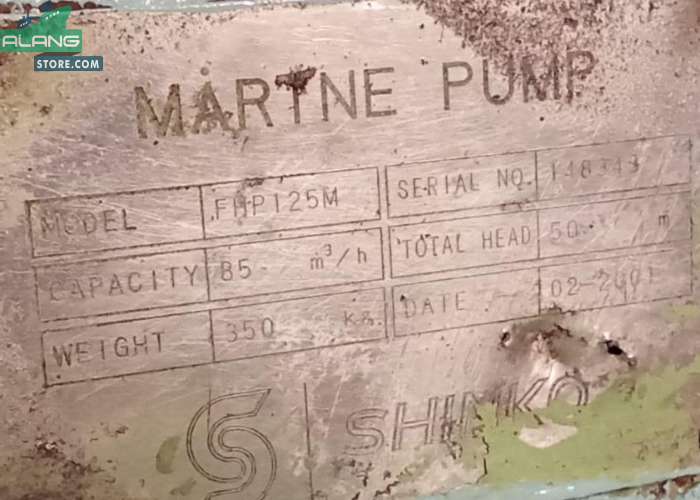 ALANG
STORE.COM
MARINE PUMP
MODEL FHP125M SERIAL NO.
CAPACITY 85 m³/h TOTAL HEAD 50 m
WEIGHT 350 kg. DATE 02-2001
SHINKO